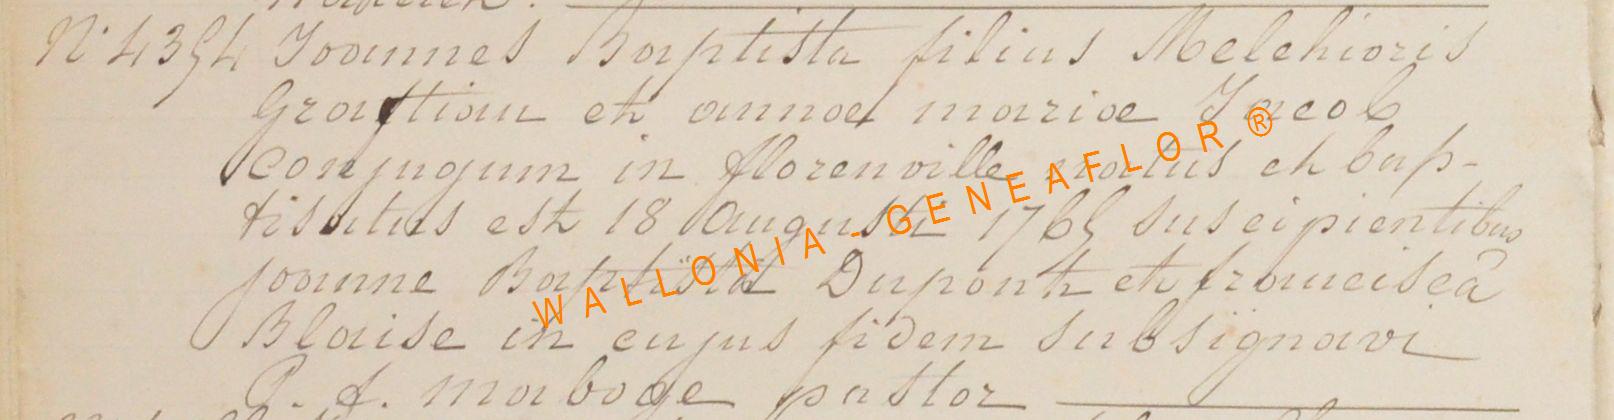 N° 4354 Joannes Baptista filius Melchioris
Grastiau et annae mariae Jacob
conjugum in florenville natus et bap-
tisatus est 18 Augusti 1765 suscipientibus
joanne Baptista Dupont et franciscâ
Blaise in cujus fidem subsignavi
P. A. maboge pastor
WALLONIA - GENEAFLOR ®